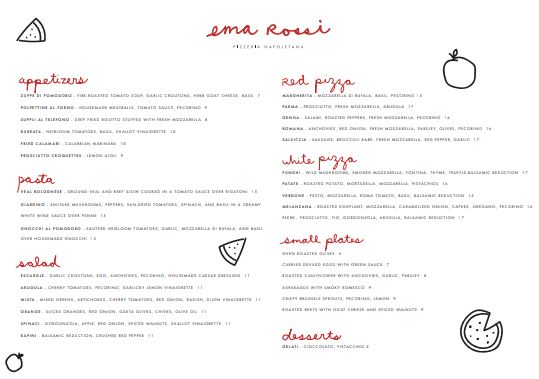 ema Rossi
PIZZERIA NAPOLETANA
appetizers
ZUPPE DI POMODORO - FIRE-ROASTED TOMATO SOUP, GARLIC CROUTONS, HERB GOAT CHEESE, BASIL 7
POLPETTINE AL FORNO - HOUSEMADE MEATBALLS, TOMATO SAUCE, PECORINO 9
SUPPLI AL TELEFONO - DEEP FRIED RISOTTO STUFFED WITH FRESH MOZZARELLA 8
BURRATA - HEIRLOOM TOMATOES, BASIL, SHALLOT VINAIGRETTE 10
FRIED CALAMARI - CALABRIAN MARINARA 10
PROSCIUTTO CROQUETTES - LEMON AIOLI 9
pasta
VEAL BOLOGNESE - GROUND VEAL AND BEEF SLOW COOKED IN A TOMATO SAUCE OVER RIGATONI 15
GIARDINO - SHIITAKE MUSHROOMS, PEPPERS, SUN-DRIED TOMATOES, SPINACH, AND BASIL IN A CREAMY
WHITE WINE SAUCE OVER PENNE 15
GNOCCHI AL POMODORO - SAUTEED HEIRLOOM TOMATOES, GARLIC, MOZZARELLA DI BUFALA, AND BASIL
OVER HOUSEMADE GNOCCHI 15
salad
ESCAROLE - GARLIC CROUTONS, EGG, ANCHOVIES, PECORINO, HOUSEMADE CAESAR DRESSING 11
ARUGULA - CHERRY TOMATOES, PECORINO, GARLICKY LEMON VINAIGRETTE 11
MISTA - MIXED GREENS, ARTICHOKES, CHERRY TOMATOES, RED ONION, DIJON VINAIGRETTE 11
ORANGE - SLICED ORANGES, RED ONION, OLIVES, CHIVES, OLIVE OIL 11
SPINACI - GORGONZOLA, APPLE, RED ONION, SPICED WALNUTS, SHALLOT VINAIGRETTE 11
RAPINI - BALSAMIC REDUCTION, CRUSHED RED PEPPER 11
Red pizza
MARGHERITA - MOZZARELLA DI BUFALA, BASIL, PECORINO 15
PARMA - PROSCIUTTO, FRESH MOZZARELLA, ARUGULA 17
GENOA - SALAMI, ROASTED PEPPERS, FRESH MOZZARELLA, PECORINO 16
ROMANA - ANCHOVIES, RED ONION, FRESH MOZZARELLA, PARSLEY, OLIVES, PECORINO 16
SALSICCIA - SAUSAGE, BROCCOLI RABE, FRESH MOZZARELLA, RED PEPPER, GARLIC 17
white pizza
FUNGHI - WILD MUSHROOMS, SMOKED MOZZARELLA, FONTINA, THYME, TRUFFLE-BALSAMIC REDUCTION 17
PATATE - ROASTED POTATO, MORTADELLA, MOZZARELLA, PISTACHIOS 16
VERDONE - PESTO, MOZZARELLA, ROMA TOMATOES, BASIL, BALSAMIC REDUCTION 15
MELANZANA - ROASTED EGGPLANT, MOZZARELLA, CARAMELIZED ONION, CAPERS, OREGANO, PECORINO 16
FICHI - PROSCIUTTO, FIG, GORGONZOLA, ARUGULA, BALSAMIC REDUCTION 17
small plates
OVEN ROASTED OLIVES 6
CURRIED DEVILED EGGS WITH GREEN SAUCE 7
ROASTED CAULIFLOWER WITH ANCHOVIES, GARLIC, PARSLEY 8
ASPARAGUS WITH SMOKY ROMESCO 9
CRISPY BRUSSELS SPROUTS, PECORINO, LEMON 9
ROASTED BEETS WITH GOAT CHEESE AND SPICED WALNUTS 9
desserts
GELATI - CIOCCOLATO, PISTACCHIO 5